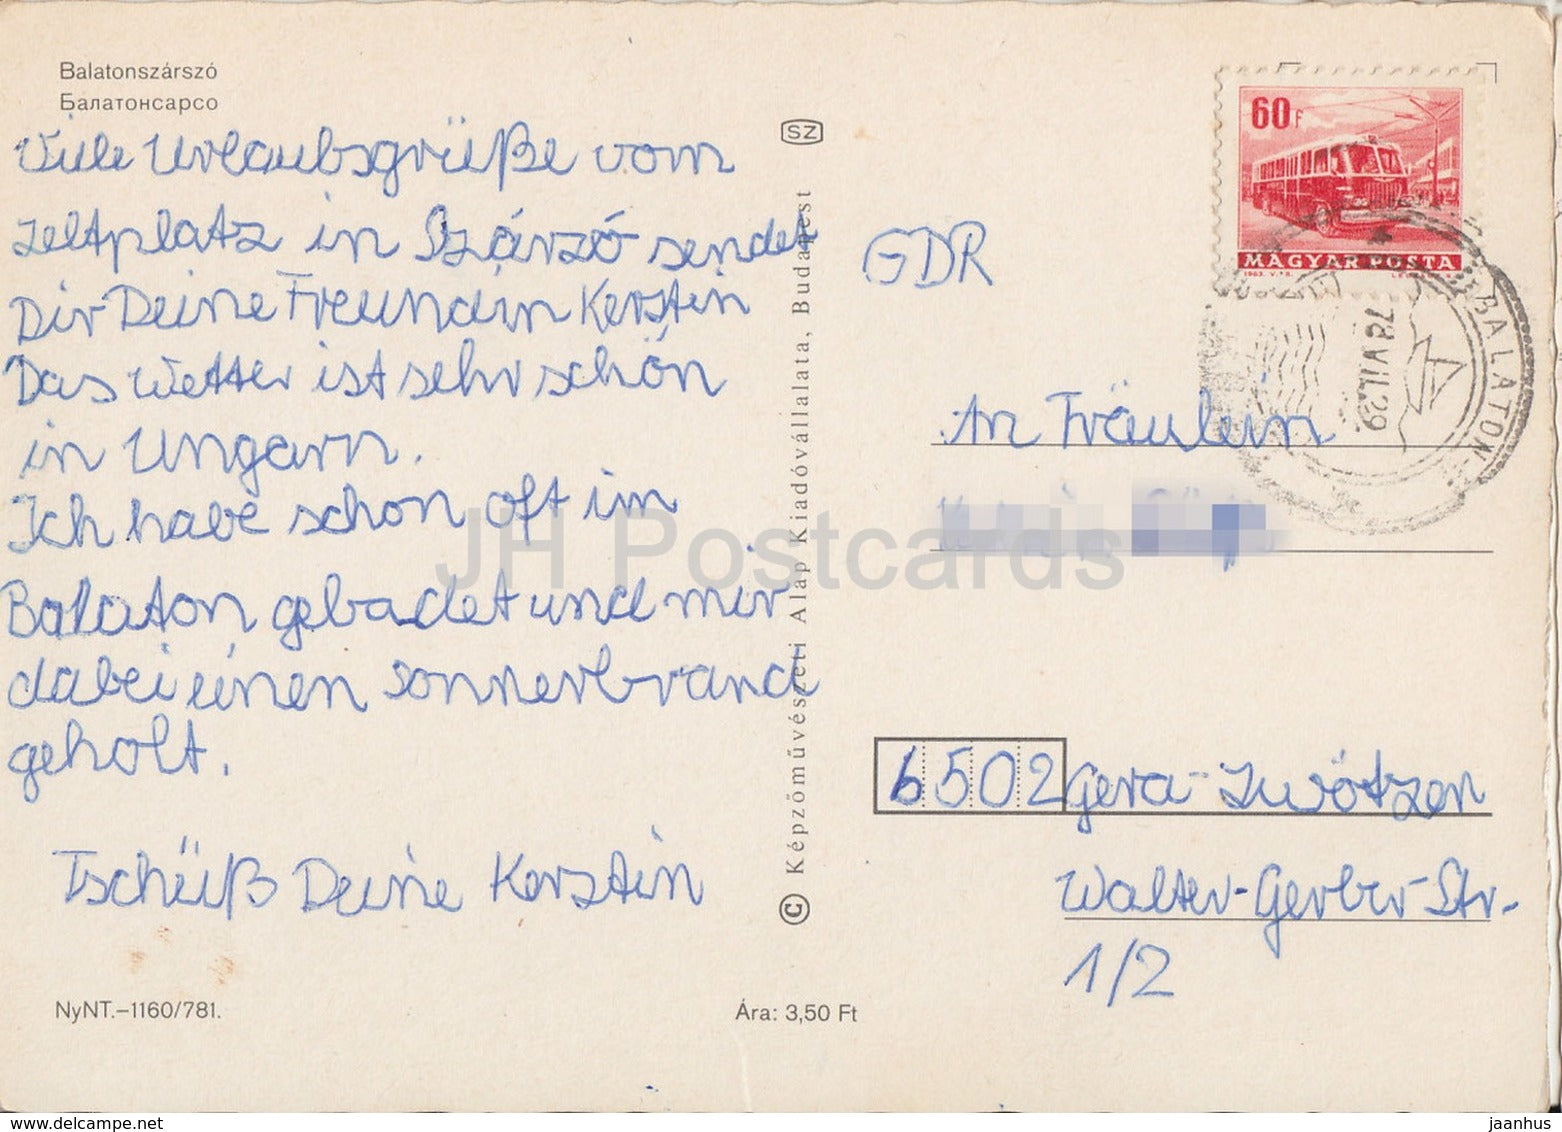 Balatonszárszó
Балатонсарсо
Viele Urlaubsgrüße vom
Zeltplatz in Szárzó sendet
Dir Deine Freundin Kerstin
Das Wetter ist sehr schön
in Ungarn.
Ich habe schon oft im
Balaton gebadet und mir
dabei einen Sonnenbrand
geholt.
Tschüß Deine Kerstin
NyNT.–1160/781.
Ára: 3,50 Ft
SZ
© Képzőművészeti Alap Kiadóvállalata, Budapest
60f
MAGYAR POSTA
BALATON
78.VII.29
GDR
An Fräulein
6502 Gera-Zwötzen
Walter-Gerber-Str.
1/2
JH Postcards
www.delcampe.net
jaanhus